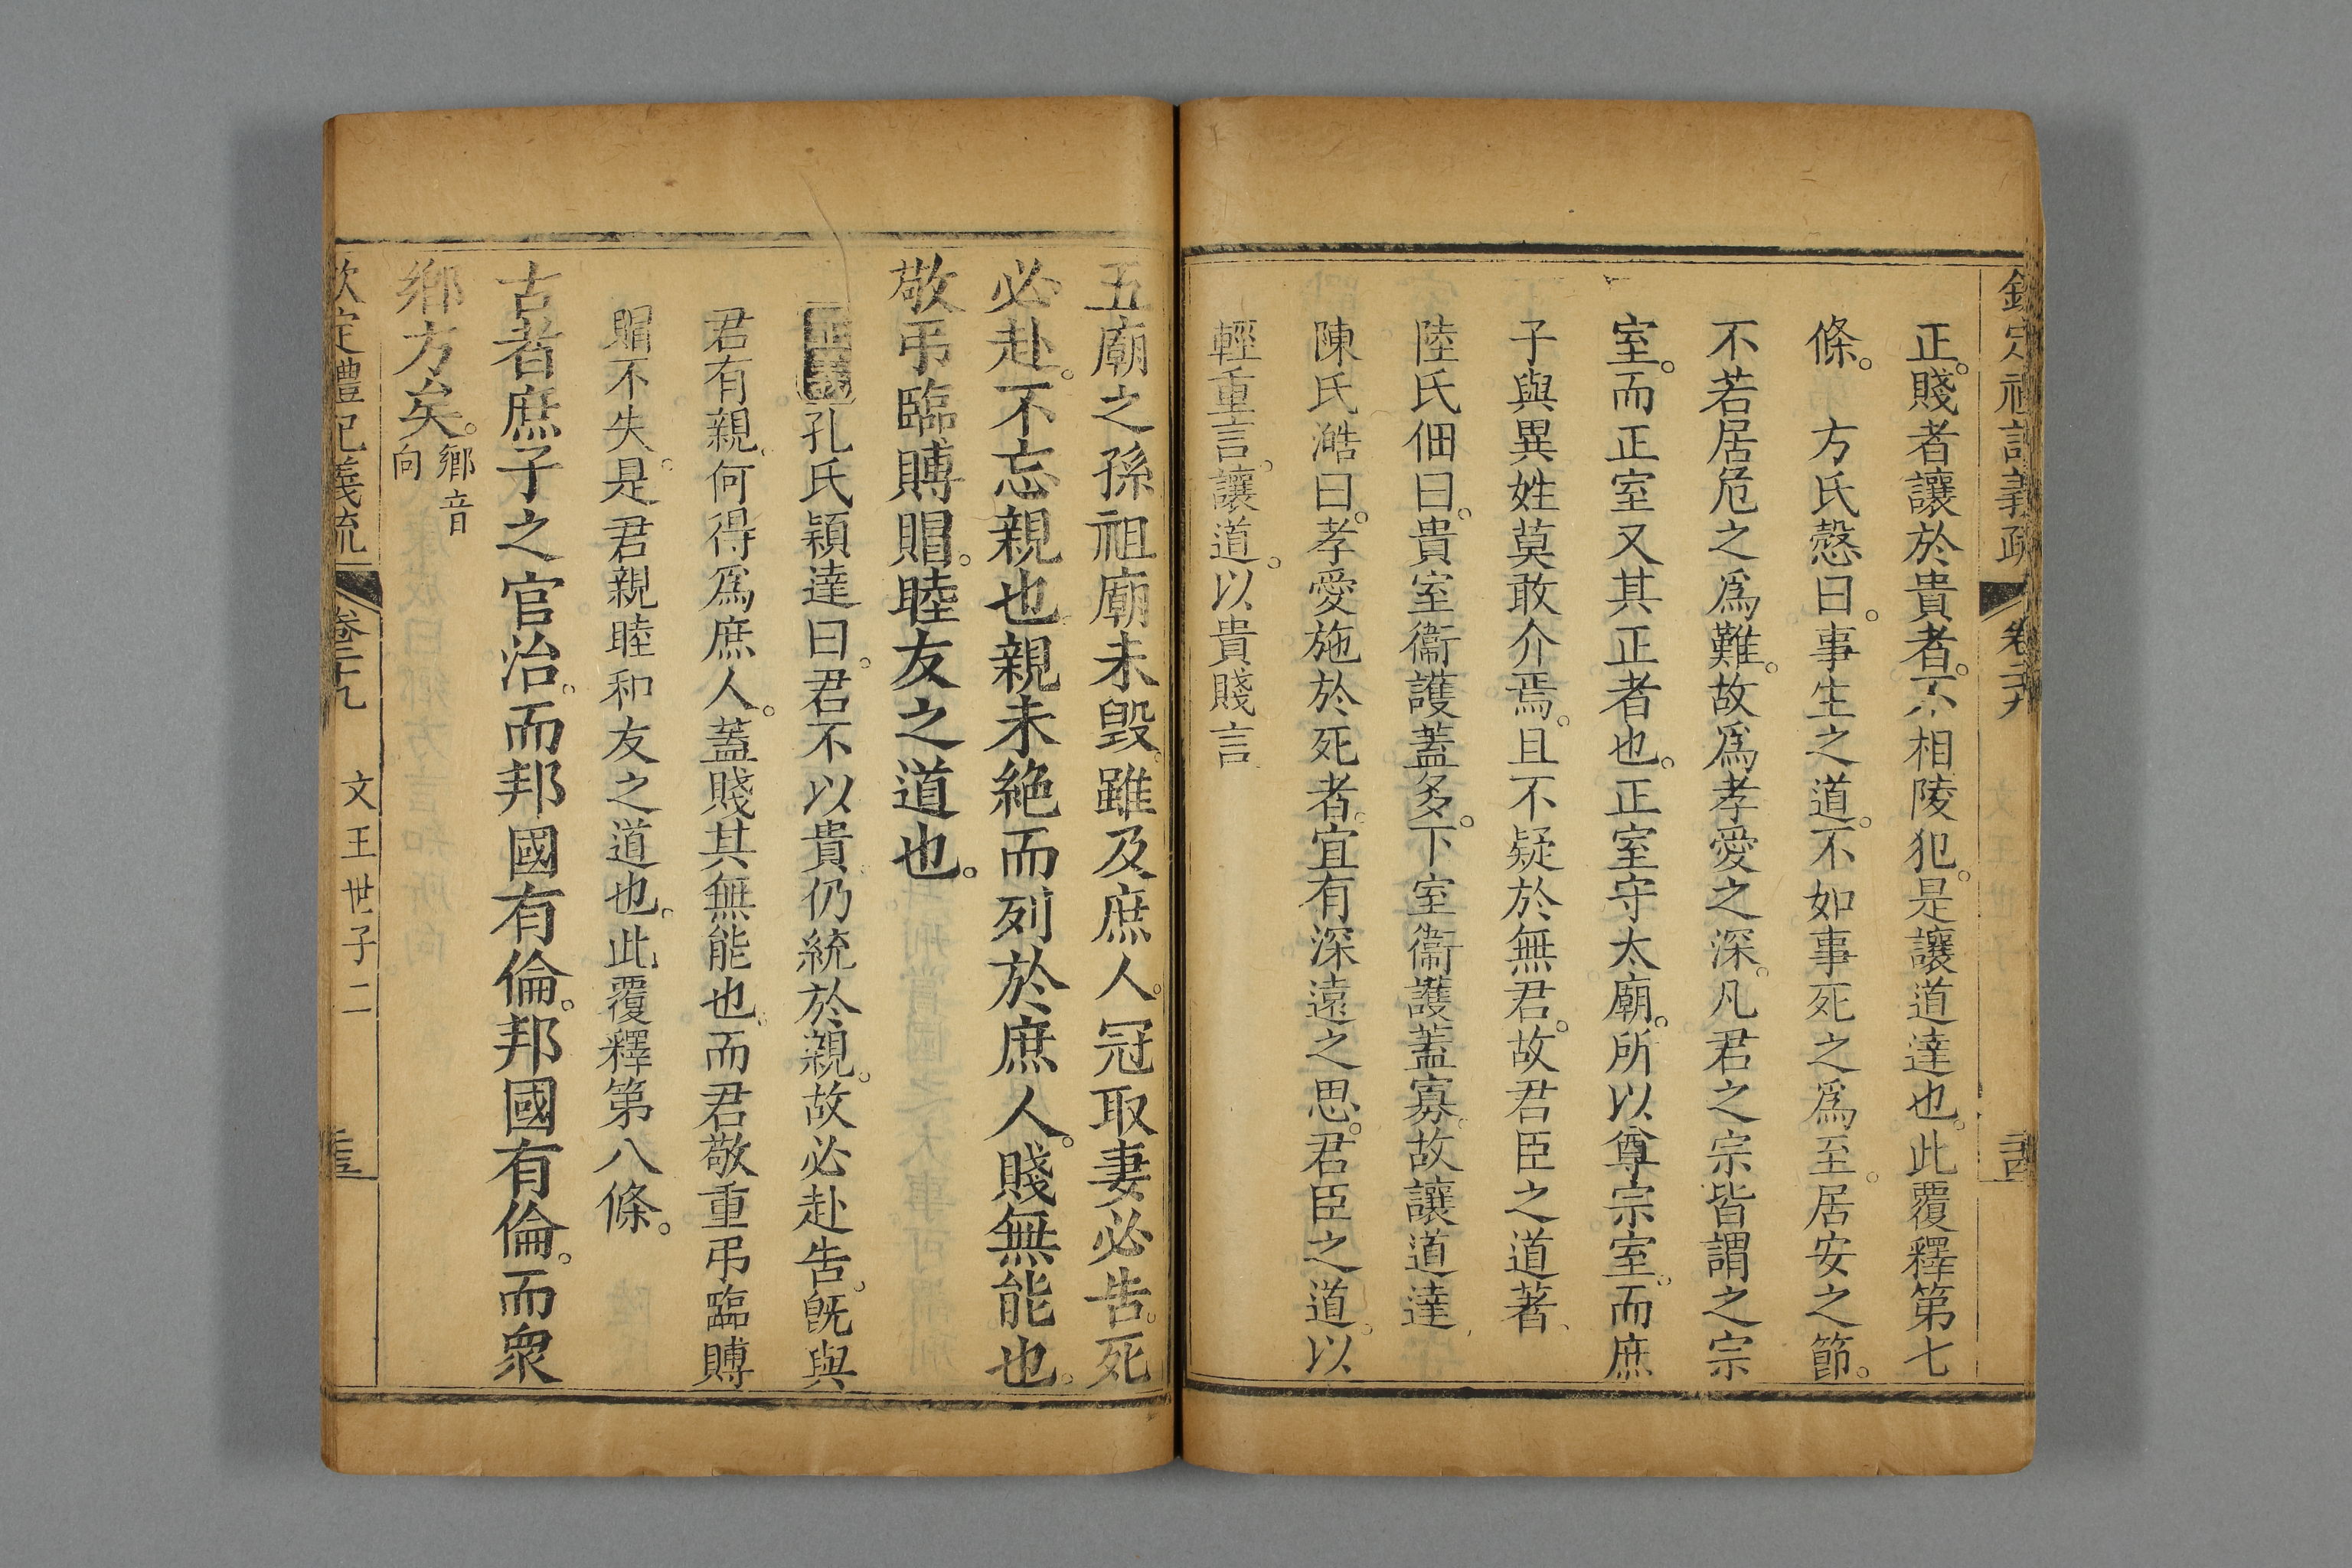 欽定禮記義疏 卷二十九
正。賤者讓於貴者。不相陵犯。是讓道達也。此覆釋第七
條。 方氏慤曰。事生之道。不如事死之爲至。居安之節。
不若居危之爲難。故爲孝愛之深。凡君之宗皆謂之宗
室。而正室又其正者也。正室守太廟。所以尊宗室。而庶
子與異姓莫敢介焉。且不疑於無君。故君臣之道著、
陸氏佃曰。貴室衞護蓋多。下室衞護蓋寡。故讓道達、
陳氏澔曰。孝愛施於死者。宜有深遠之思。君臣之道。以
輕重言。讓道。以貴賤言
五廟之孫祖廟未毀。雖及庶人。冠取妻必告。死
必赴。不忘親也。親未絶而列於庶人。賤無能也。
敬弔臨賻賵。睦友之道也。
正義孔氏穎達曰。君不以貴仍統於親。故必赴告。旣與
君有親。何得爲庶人。蓋賤其無能也。而君敬重弔臨賻
賵不失。是君親睦和友之道也。此覆釋第八條。
古者庶子之官治。而邦國有倫。邦國有倫。而衆
鄉方矣。鄉音向
欽定禮記義疏 卷二十九 文王世子二